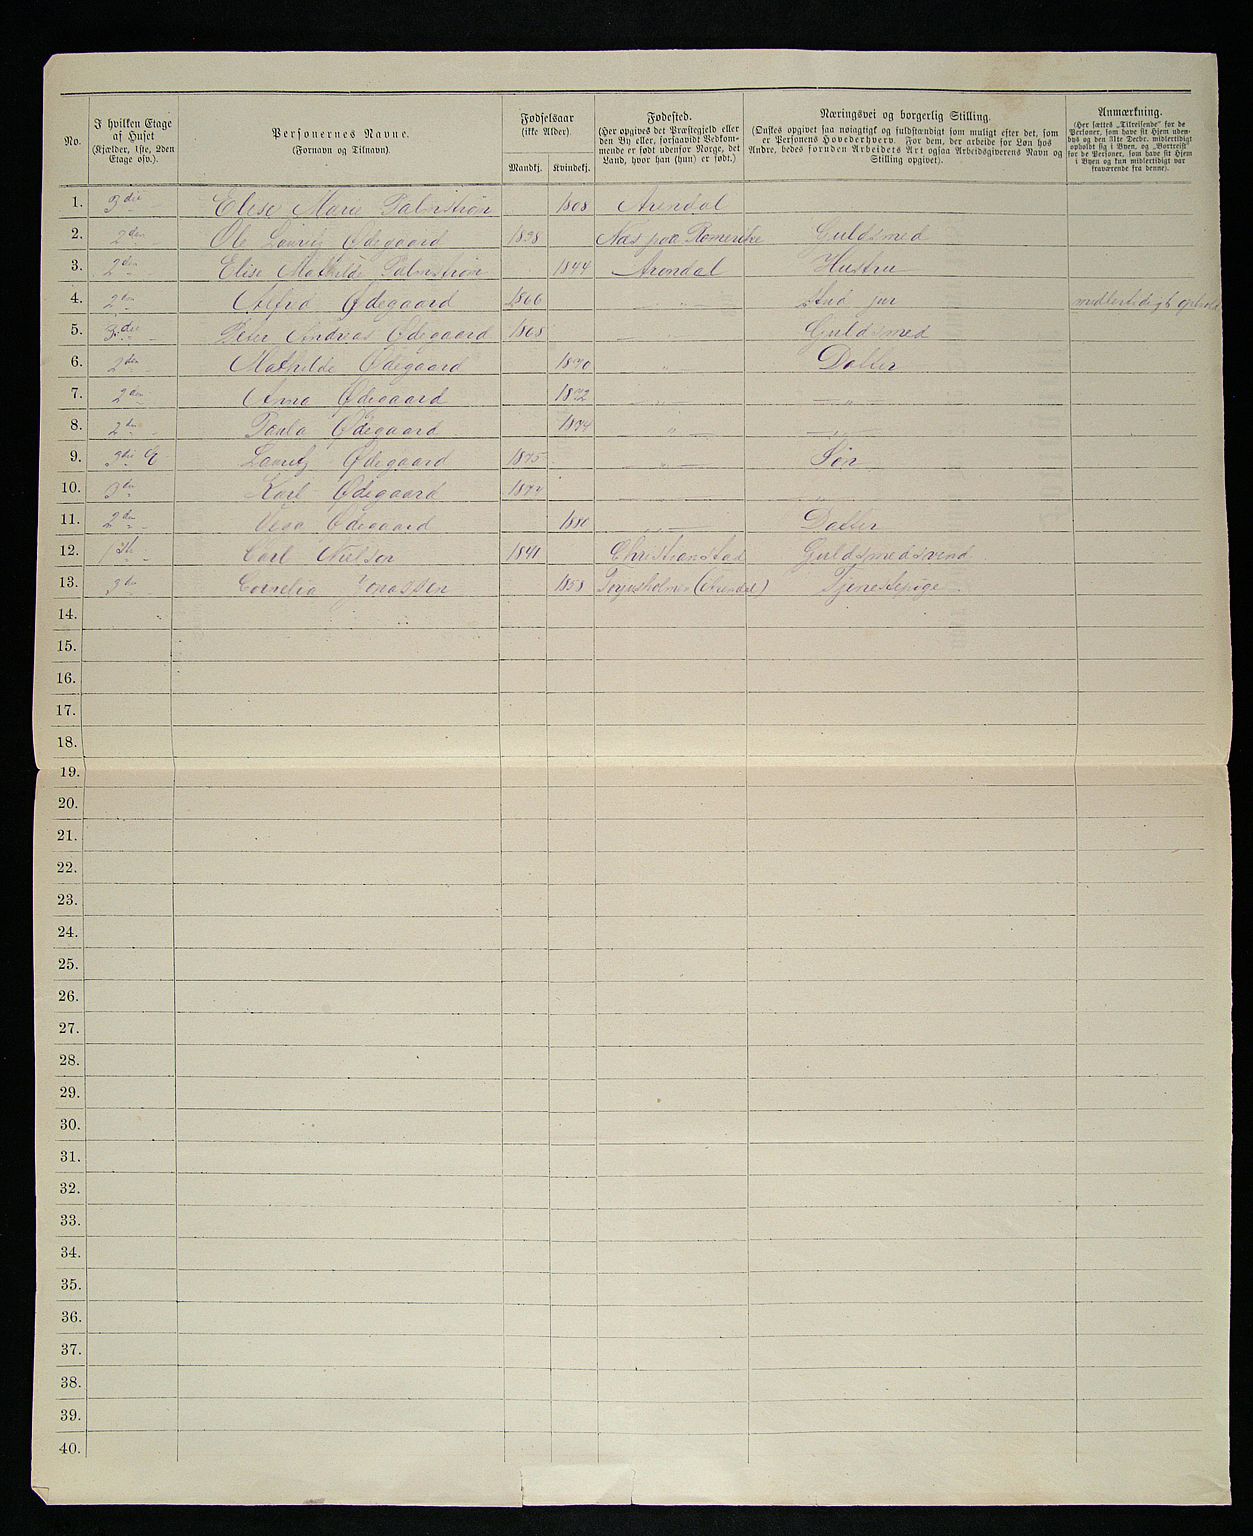 No.
I hvilken Etage af Huset
(Kjælder, 1ste, 2den Etage osv.).
Personernes Navne.
(Fornavn og Tilnavn).
Fødselsaar
(ikke Alder).
Mandkj. Kvindekj.
Fødested.
(Her opgives det Præstegjeld eller den By eller, forsaavidt Vedkommende er født udenfor Norge, det Land, hvor han (hun) er født.)
Næringsvei og borgerlig Stilling.
(Ønskes opgivet saa nøiagtigt og fuldstændigt som muligt efter det, som er Personens Hovederhverv. For dem, der arbeide for Løn hos Andre, bedes foruden Arbeidets Art ogsaa Arbeidsgiverens Navn og Stilling opgivet).
Anmærkning.
(Her sættes „Tilreisende“ for de Personer, som have sit Hjem udenbys og den 31te Decbr. midlertidigt opholdt sig i Byen, og „Bortreist“ for de Personer, som have sit Hjem i Byen og kun midlertidigt var fraværende fra denne).
1. 3die Elise Marie Palmstrøm 1808 Arendal
2. 2den Ole Lauritz Ødegaard 1838 Næs paa Romerike Guldsmed
3. 2den Elise Mathilde Palmstrøm 1844 Arendal Hustru
4. 2den Alfred Ødegaard 1866 „ Stud jur midlertidigt ophold
5. 3die Peter Andreas Ødegaard 1868 Guldsmed
6. 2den Mathilde Ødegaard 1870 „ Datter
7. 2den Anna Ødegaard 1872 „ „
8. 2den Paula Ødegaard 1874 „ „
9. 3die E Lauritz Ødegaard 1875 „ Søn
10. 3die Karl Ødegaard 1877 „ „
11. 2den Ødegaard 1880 „ Datter
12. 1ste Carl Nielsen 1841 Christianstad Guldsmedsvend
13. 3die Cornelia Jonassen 1858 (Arendal) Tjenestepige
14.
15.
16.
17.
18.
19.
20.
21.
22.
23.
24.
25.
26.
27.
28.
29.
30.
31.
32.
33.
34.
35.
36.
37.
38.
39.
40.